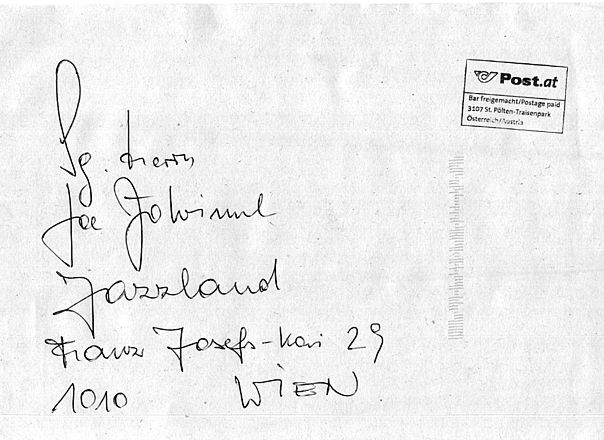 Post.at
Bar freigemacht/Postage paid
3107 St. Pölten-Traisenpark
Österreich/Austria
Sg. Herrn
Joe Zawinul
Jazzland
Franz Josefs-Kai 29
1010 WIEN